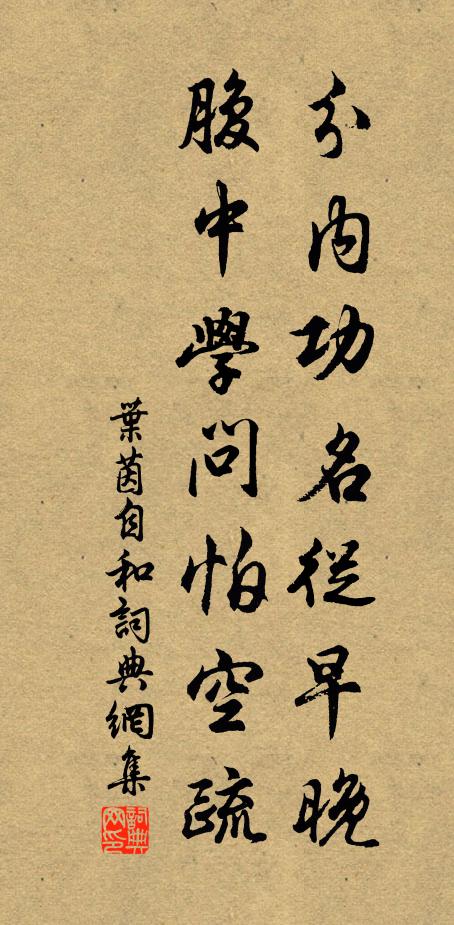 分內功名從早晚
腹中學問怕空疏
葉茵自和詞典網集
詞典網印